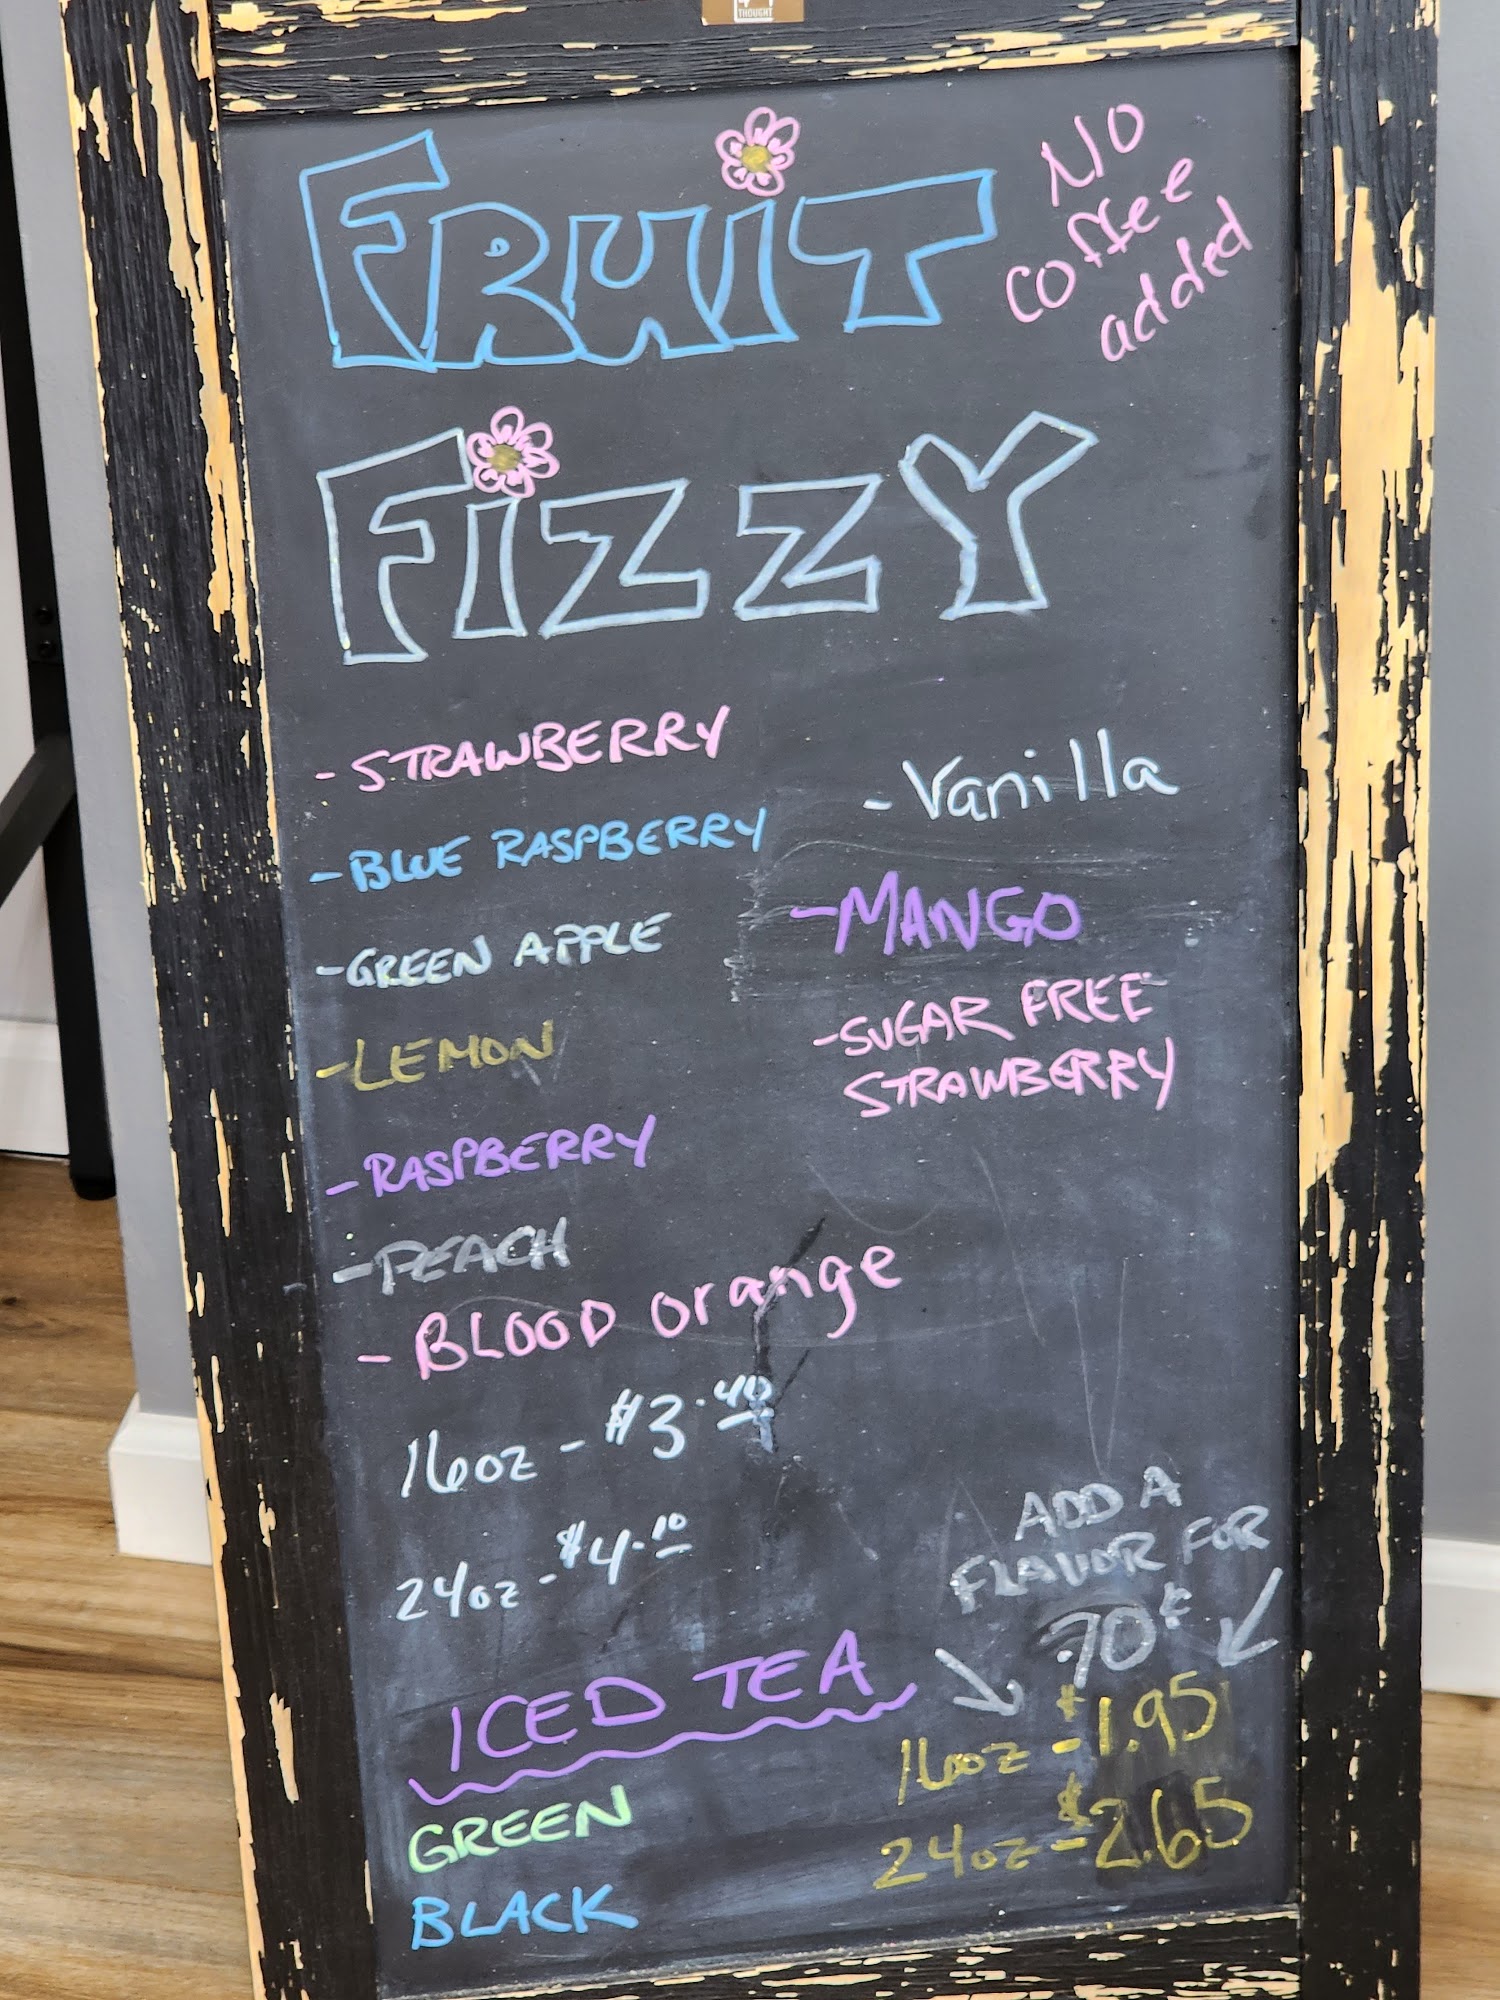 THOUGHT
FRUIT
No
coffee
added
FiZZY
- STRAWBERRY
- BLUE RASPBERRY
- GREEN APPLE
- LEMON
- RASPBERRY
- PEACH
- BLOOD orange
- Vanilla
- MANGO
- SUGAR FREE
STRAWBERRY
16oz - $3.40
24oz - $4.10
ADD A
FLAVOR FOR
.70¢
ICED TEA
GREEN
BLACK
16oz - $1.95
24oz - $2.65